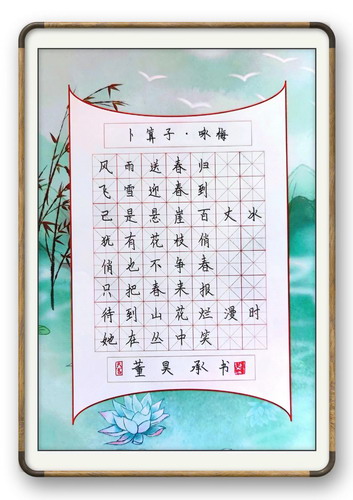 卜算子·咏梅
风雨送春归
飞雪迎春到
已是悬崖百丈冰
犹有花枝俏
俏也不争春
只把春来报
待到山花烂漫时
她在丛中笑
董昊承书